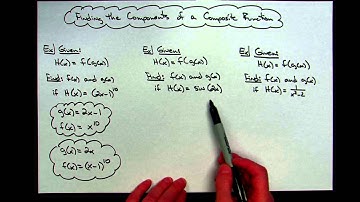 Finding the Components of a Composite Function
Ex Given:
H(x) = f(g(x))
Find: f(x) and g(x)
if H(x) = (2x-1)^10
g(x) = 2x-1
f(x) = x^10
g(x) = 2x
f(x) = (x-1)^10
Ex Given:
H(x) = f(g(x))
Find: f(x) and g(x)
if H(x) = sin(2x)
Ex Given:
H(x) = f(g(x))
Find: f(x) and g(x)
if H(x) = 1/(x²-2)